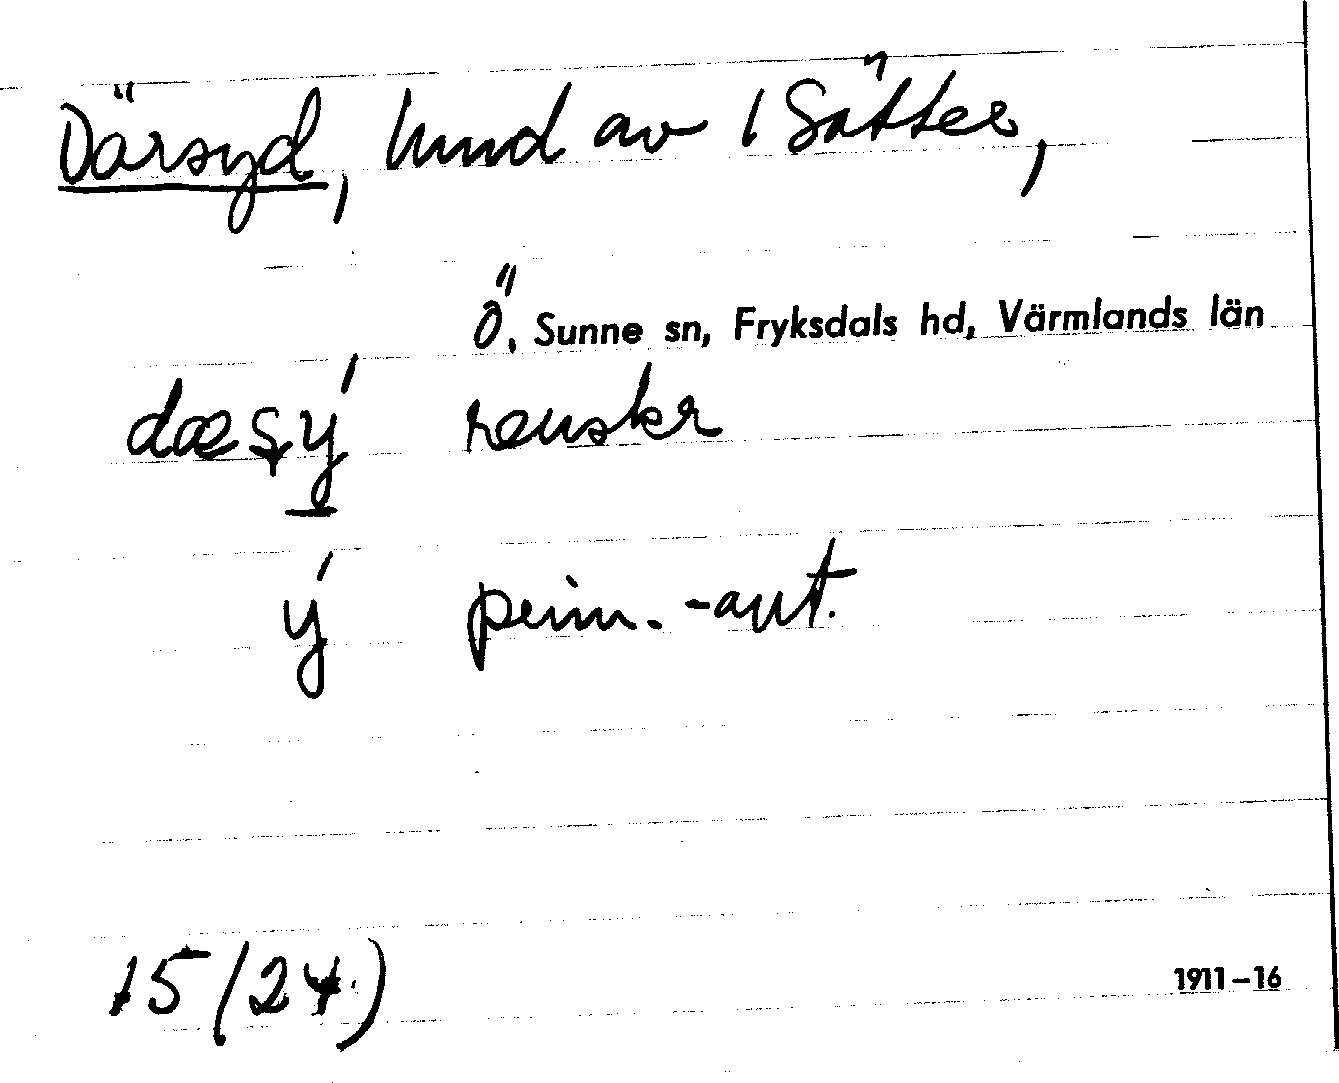 Därsyd, hmd av 1 Sätter,
Ö. Sunne sn, Fryksdals hd, Värmlands län
dæşý renskr
ý prim.-ant.
15 (24)
1911-16